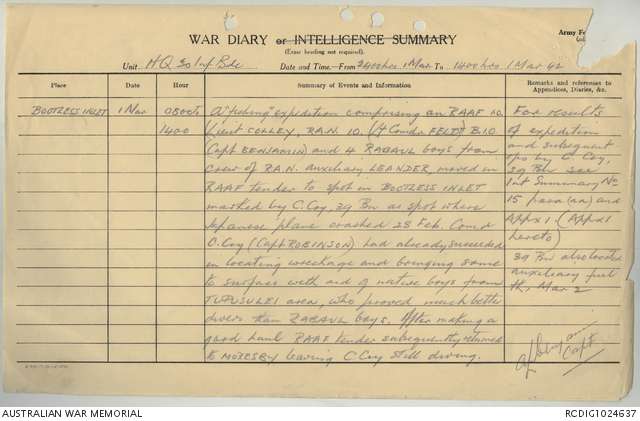 WAR DIARY or INTELLIGENCE SUMMARY
(Erase heading not required).
Army Fo
Unit HQ 30 Inf Bde Date and Time—From 2400 hrs 1 Mar To 1400 hrs 1 Mar 42
Place Date Hour Summary of Events and Information Remarks and references to Appendices, Diaries, &c.
BOOTLESS INLET 1 Mar 0800 to A "fishing" expedition comprising an RAAF IO. For results
1400 Lieut COLLEY, RAN. IO. (Lt Comdr FELDT) B.I.O. of expedition
(Capt BENJAMIN) and 4 RABAUL boys from and subsequent
crew of RAN. auxiliary LEANDER, moved in ops by C. Coy,
RAAF tender to spot in BOOTLESS INLET 39 Bn see
marked by C. Coy, 39 Bn as spot where Int Summary No
Japanese plane crashed 28 Feb. Comd 15 para (aa) and
Coy (Capt ROBINSON) had already succeeded App x 1. (App x 1
in locating wreckage and bringing same hereto)
to surface with aid of native boys from 39 Bn also located
TUPUSULEI area, who proved much better auxiliary fuel
divers than RABAUL boys. After making a tk, Mar 2
good haul RAAF tender subsequently returned
to MORESBY leaving C. Coy still diving.
Capt
AUSTRALIAN WAR MEMORIAL
RCDIG1024637